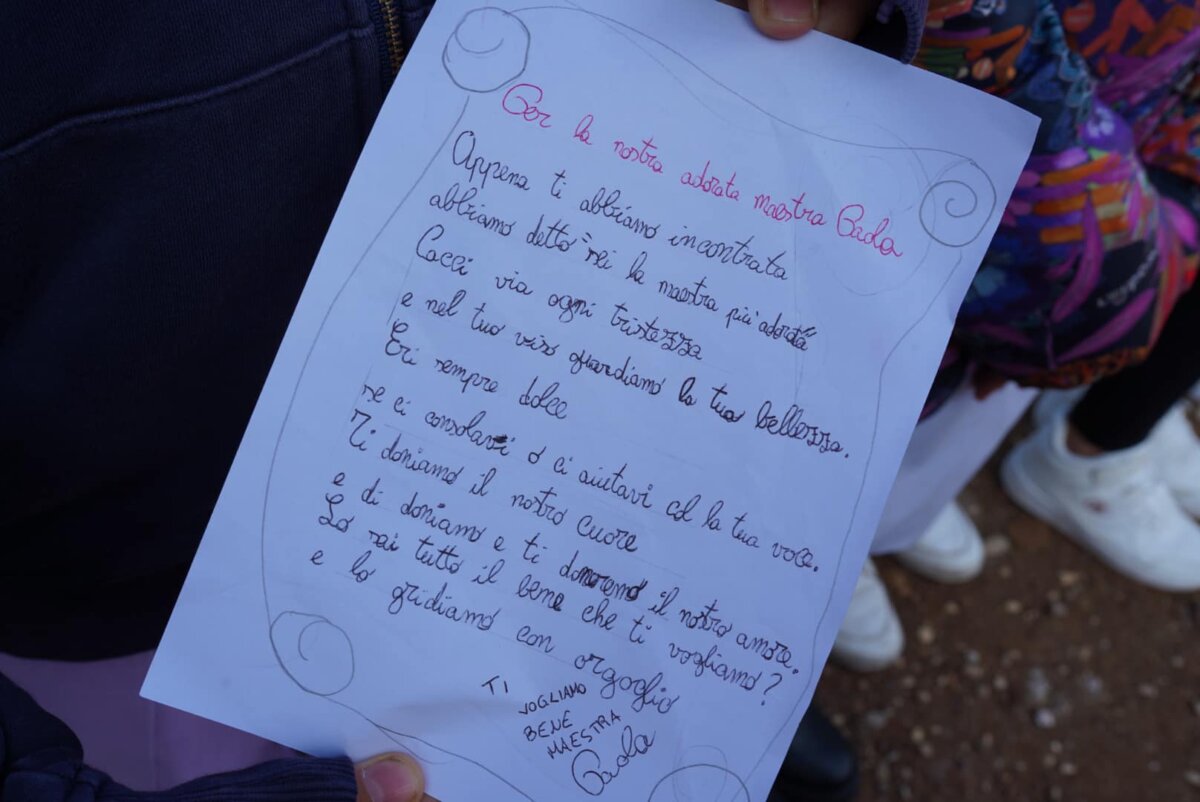 Per la nostra adorata maestra Paola
Appena ti abbiamo incontrata
abbiamo detto "sei la maestra più adorata"
Cacci via ogni tristezza
e nel tuo viso guardiamo la tua bellezza.
Eri sempre dolce
se ci consolavi o ci aiutavi col la tua voce.
Ti doniamo il nostro cuore
e di doniamo e ti donoremo il nostro amore.
Lo sai tutto il bene che ti vogliamo?
e lo gridiamo con orgoglio
TI
VOGLIAMO
BENE
MAESTRA
Paola